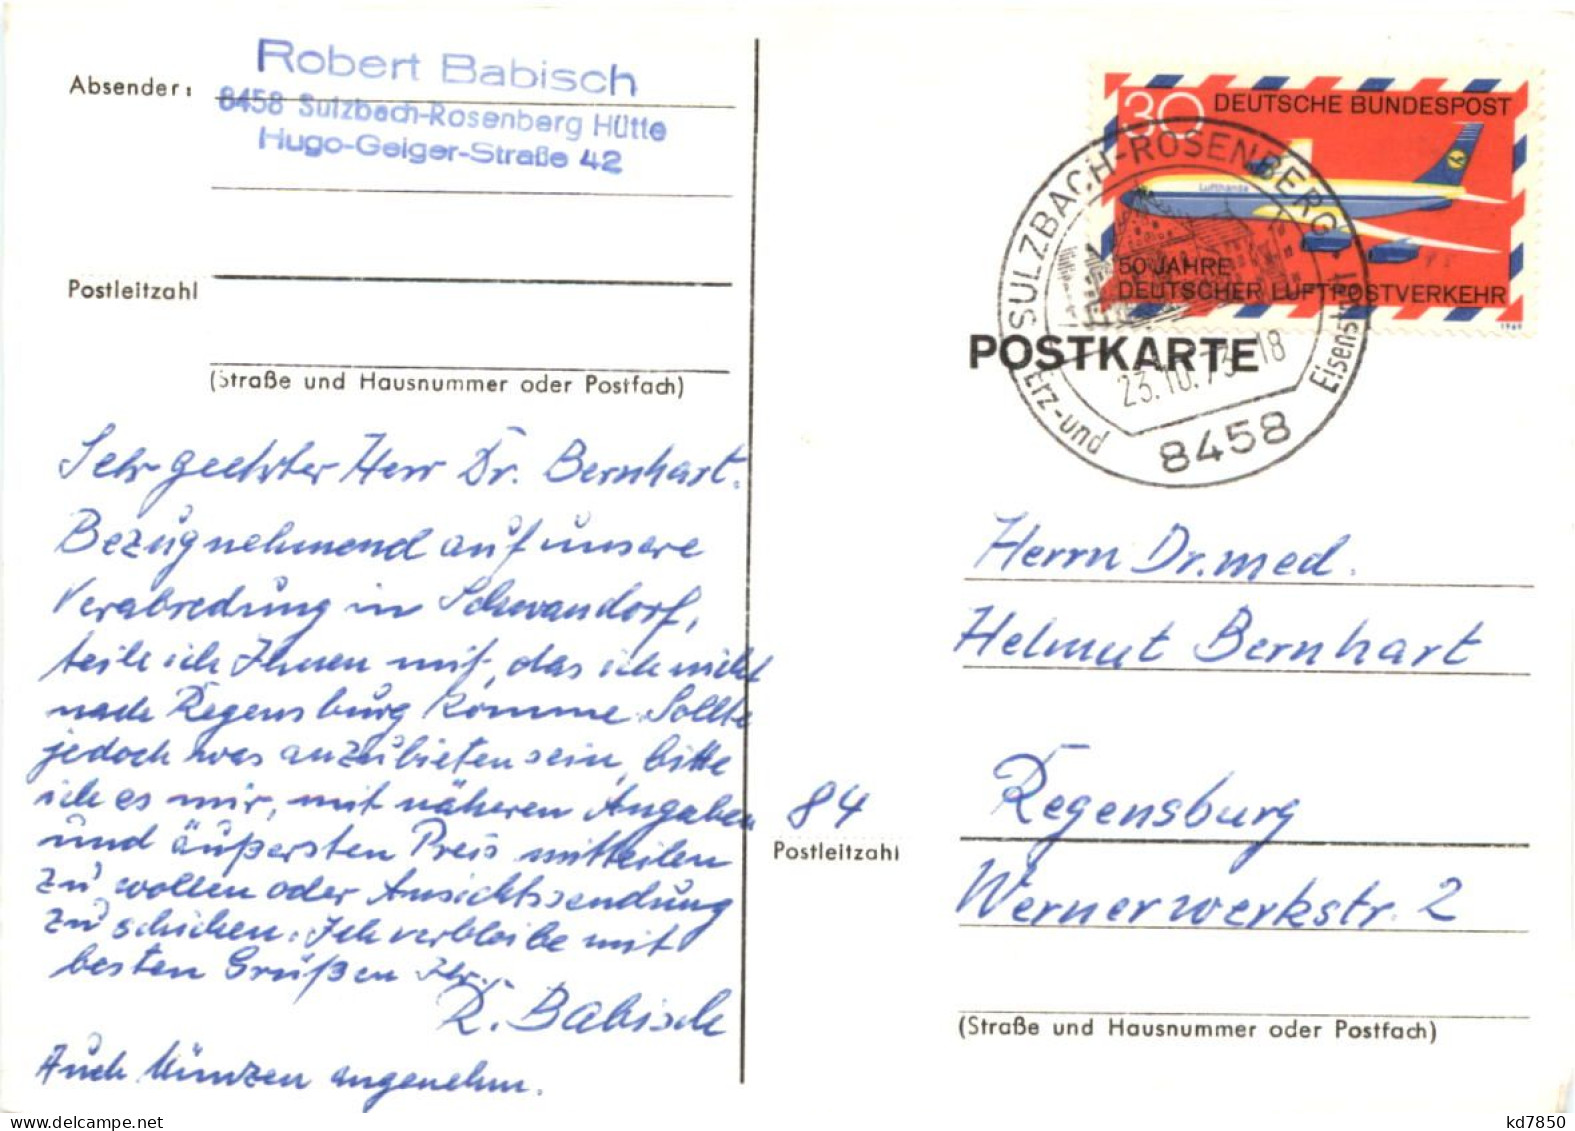 Absender:
Robert Babisch
8458 Sulzbach-Rosenberg Hütte
Hugo-Geiger-Straße 42
Postleitzahl
(Straße und Hausnummer oder Postfach)
Sehr geehrter Herr Dr. Bernhart.
Bezugnehmend auf unsere
Verabredung in Schwandorf,
teile ich Ihnen mit, das ich nicht
nach Regensburg komme. Sollte
jedoch was anzubieten sein, bitte
ich es mir, mit näheren Angaben
und äußersten Preis mitteilen
zu wollen oder Ansichtssendung
zu schicken. Ich verbleibe mit
besten Grüßen Ihr.
R. Babisch
Auch Münzen angenehm.
30 DEUTSCHE BUNDESPOST
Lufthansa
50 JAHRE
DEUTSCHER LUFTPOSTVERKEHR
1969
SULZBACH-ROSENBERG
23.10.73-18
Erz- und Eisenstadt
8458
POSTKARTE
Herrn Dr. med.
Helmut Bernhart
84 Regensburg
Postleitzahl
Wernerwerkstr. 2
(Straße und Hausnummer oder Postfach)
kd7850